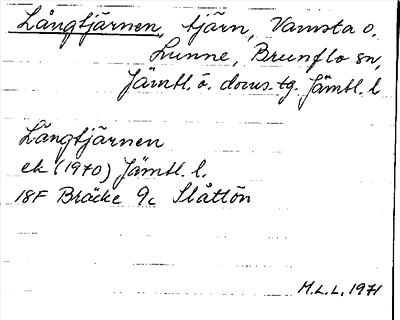 Långtjärnen, tjärn, Vamsta o.
Lunne, Brunflo sn,
Jämtl. ö. doms.tg. Jämtl. l
Långtjärnen
ek (1970) Jämtl. l.
18F Bräcke 9c Slåttön
M.L.L. 1971